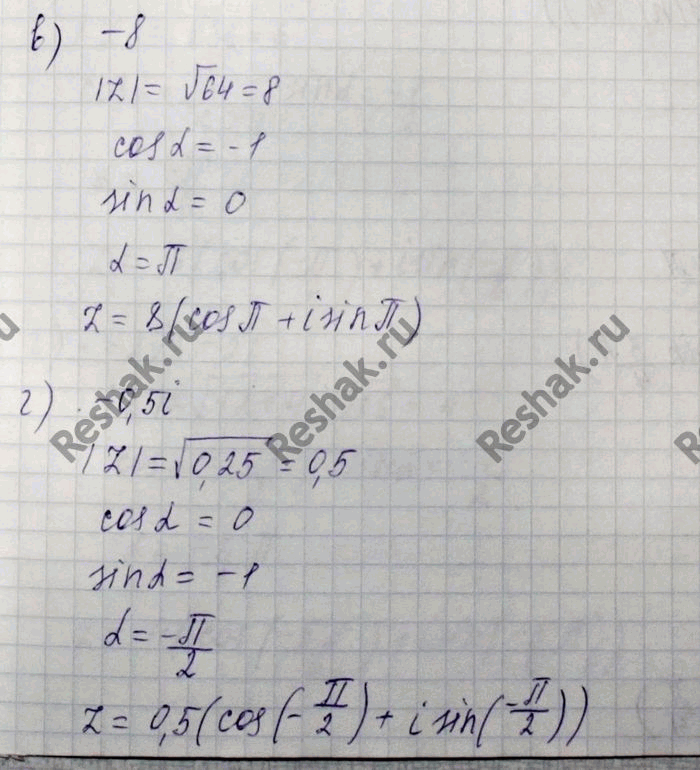 в) -8
|z| = √64 = 8
cos α = -1
sin α = 0
α = π
z = 8(cos π + i sin π)
г) -0,5i
|z| = √0,25 = 0,5
cos α = 0
sin α = -1
α = -π/2
z = 0,5(cos(-π/2) + i sin(-π/2))
Reshak.ru
Reshak.ru